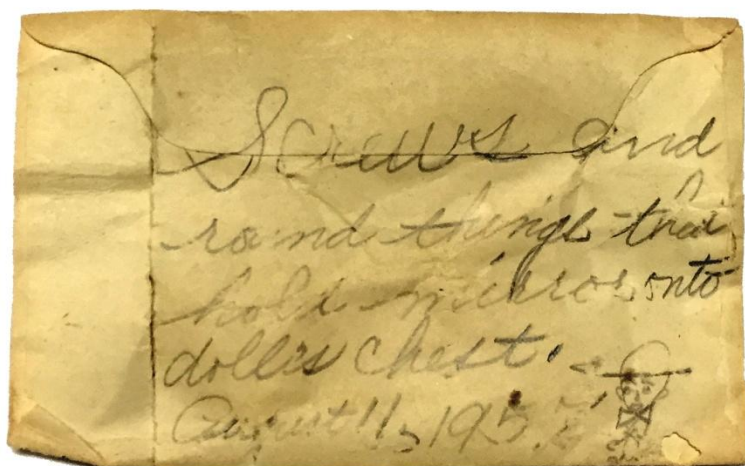 Screws and
round things that
hold mirror onto
doll's chest.
August 11, 195